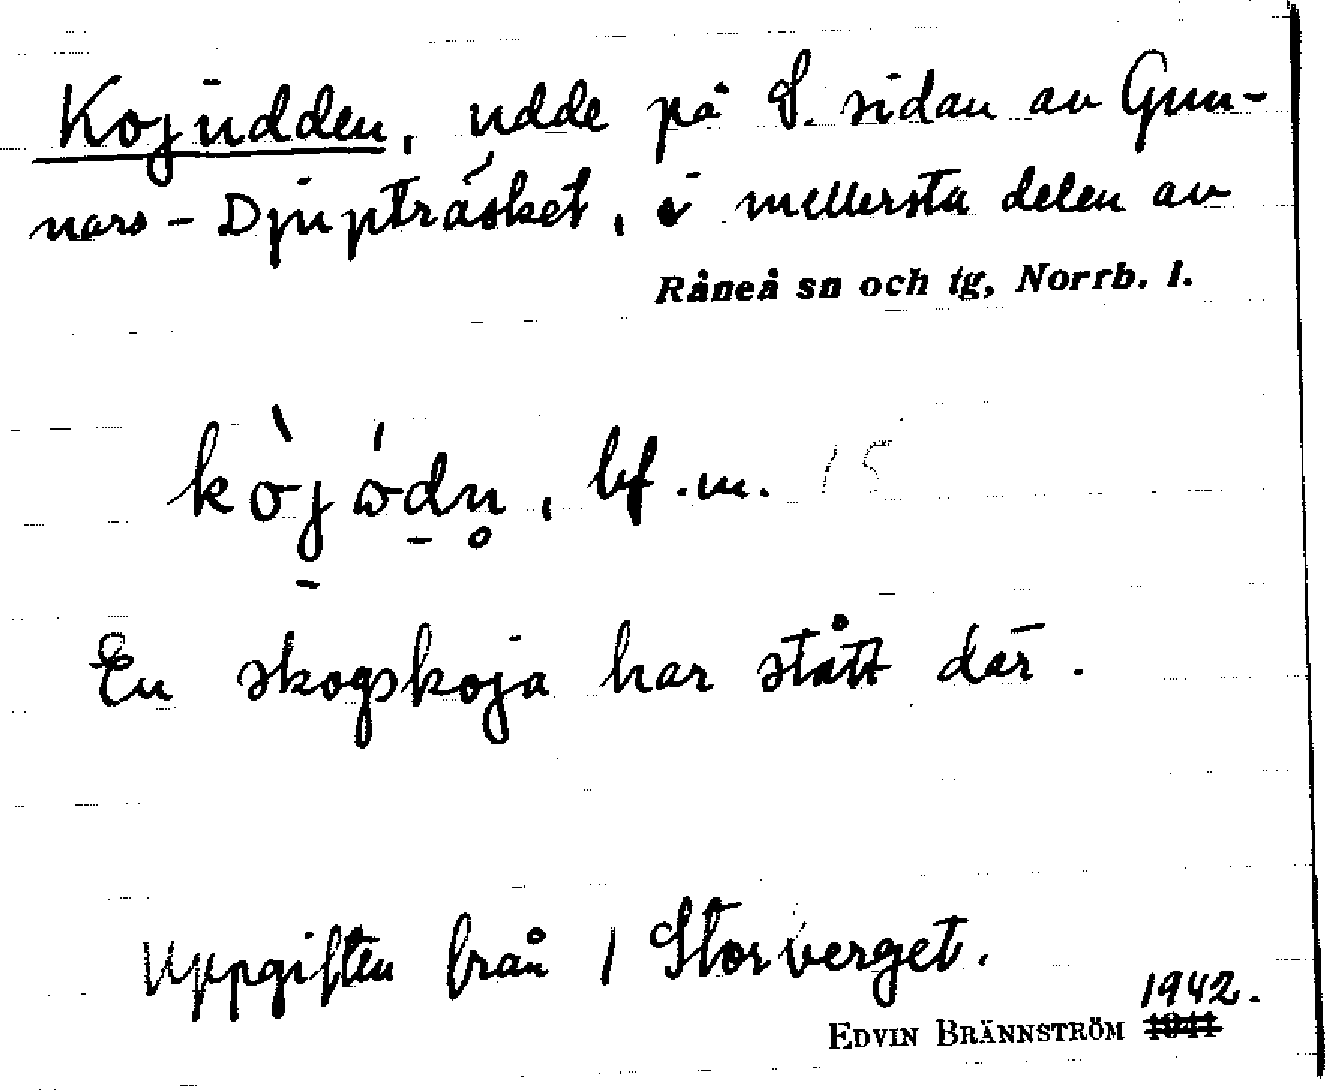 Kojudden, udde på S. sidan av Gun-
nars-Djupträsket, i mellersta delen av
Råneå sn och tg, Norrb. l.
kòjódn̥, bf. m. 15
En skogskoja har stått där.
Uppgiften från 1 Storberget.
1942.
EDVIN BRÄNNSTRÖM 1941